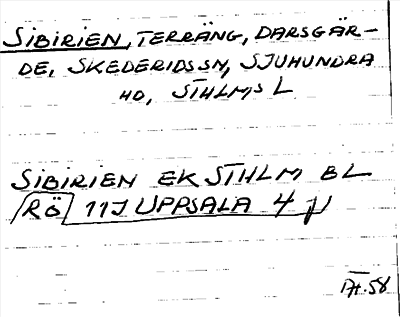 SIBIRIEN, TERRÄNG, DARSGÄR-
DE, SKEDERIDSSN, SJUHUNDRA
HD, STHLMS L
SIBIRIEN EK STHLM BL
RÖ 11J UPPSALA 4